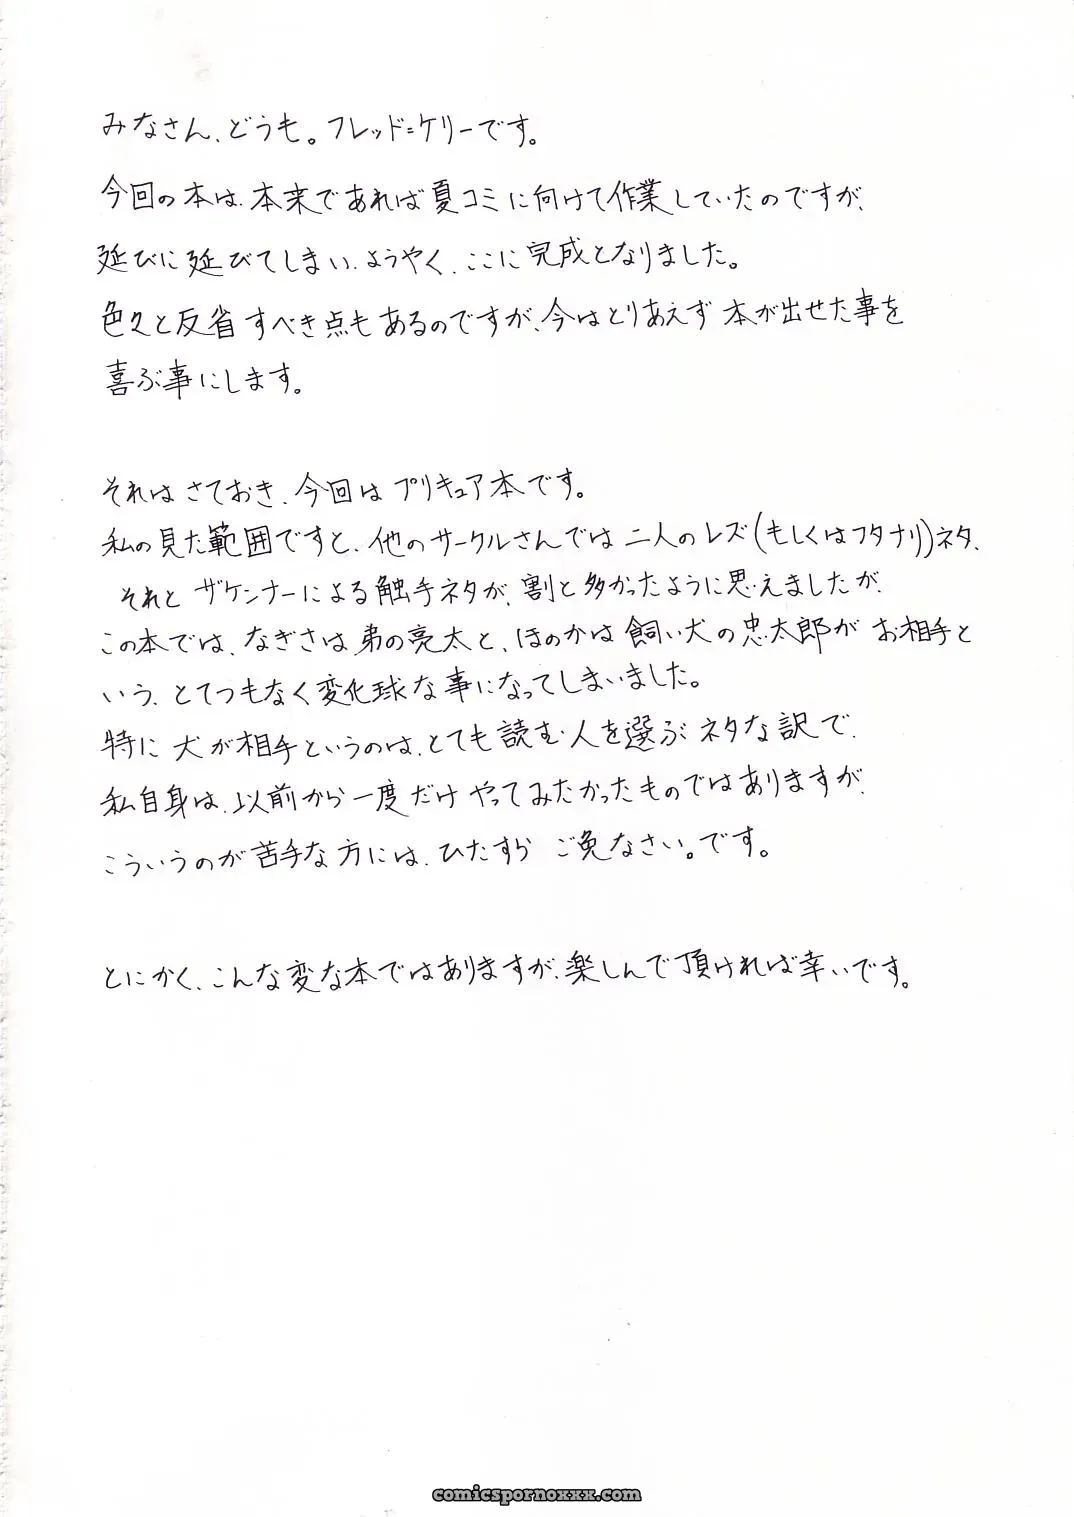 みなさん、どうも。フレッド=ケリーです。
今回の本は、本来であれば夏コミに向けて作業していたのですが、
延びに延びてしまい、ようやく、ここに完成となりました。
色々と反省すべき点もあるのですが、今はとりあえず本が出せた事を
喜ぶ事にします。
それはさておき、今回はプリキュア本です。
私の見た範囲ですと、他のサークルさんでは二人のレズ(もしくはフタナリ)ネタ、
それとザケンナーによる触手ネタが、割と多かったように思えましたが、
この本では、なぎさは弟の亮太と、ほのかは飼い犬の忠太郎がお相手と
いう、とてつもなく変化球な事になってしまいました。
特に犬が相手というのは、とても読む人を選ぶネタな訳で、
私自身は、以前から一度だけやってみたかったものではありますが、
こういうのが苦手な方には、ひたすらご免なさい。です。
とにかく、こんな変な本ではありますが、楽しんで頂ければ幸いです。
comicspornoxxx.com